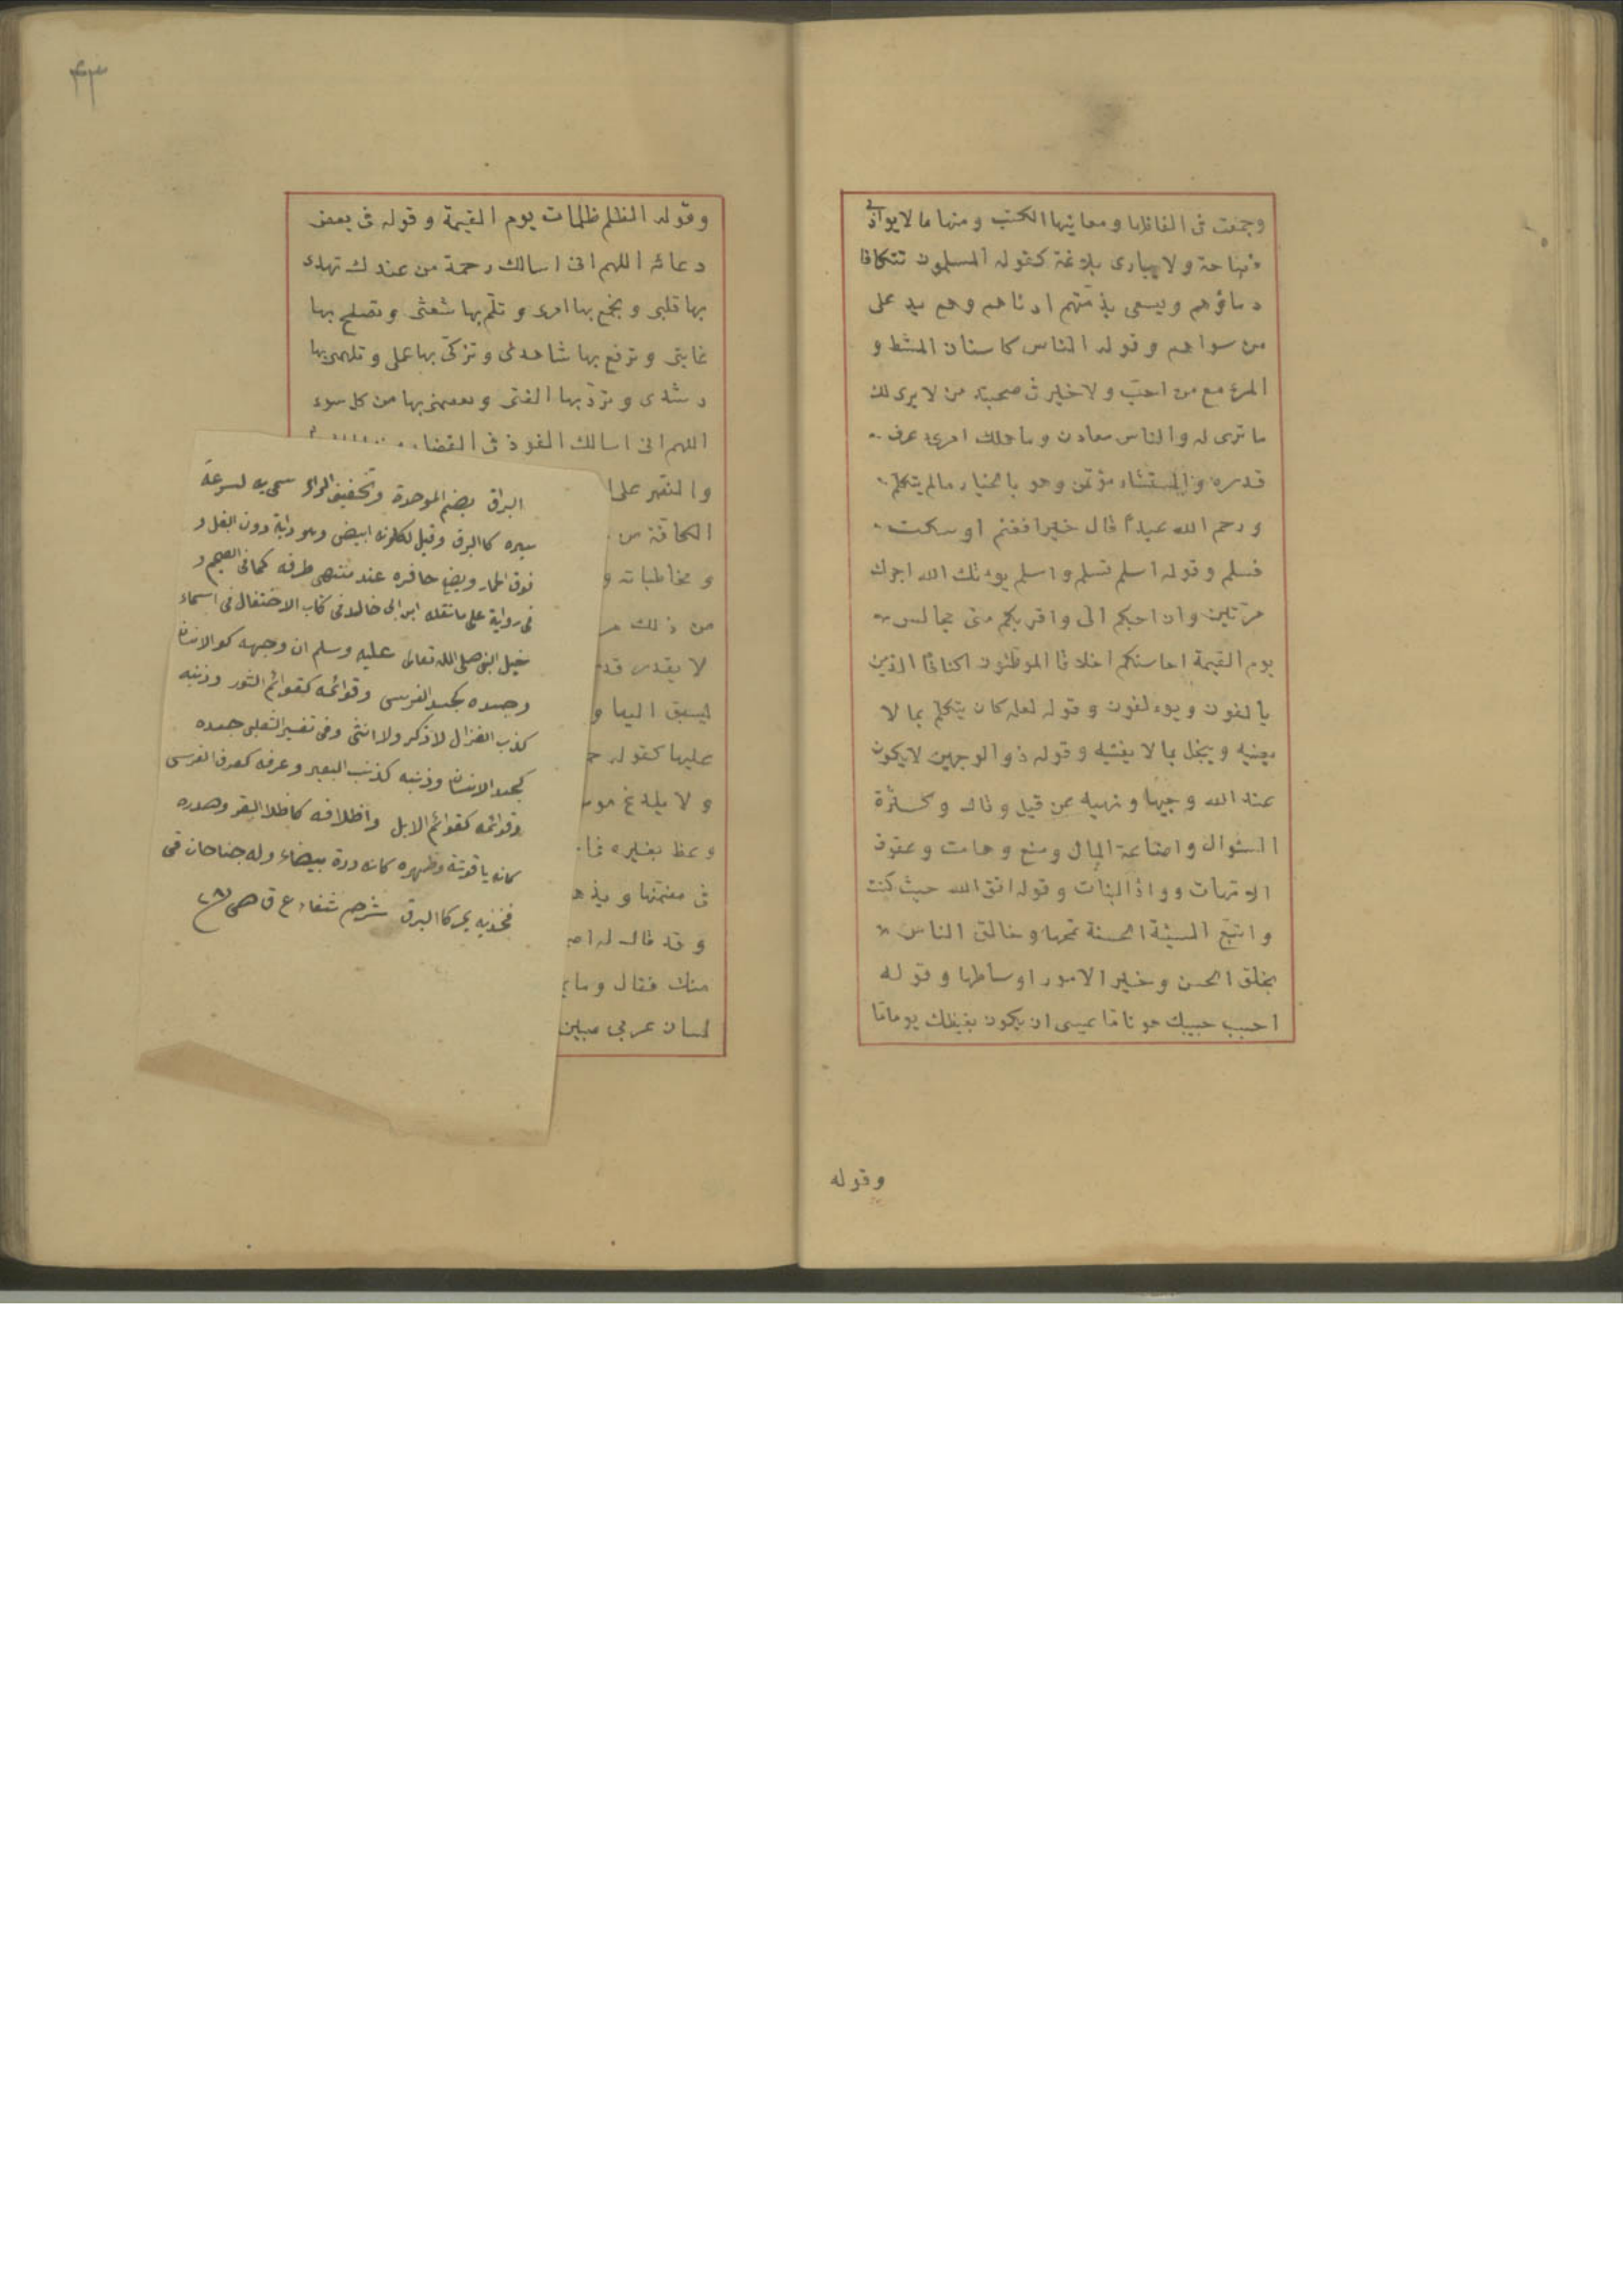 وجمعت فى الفاظها ومعانيها الكتب ومنها ما لا يوازى
فصاحة ولا يبارى بلاغة كقوله المسلمون تتكافا
دماؤهم ويسعى بذمّتهم ادناهم وهم يد على
من سواهم وقوله الناس كاسنان المشط و
المرء مع من احبّ ولا خير فى صحبة من لا يرى لك
ما ترى له والناس معادن وما هلك امرئ عرف
قدره والمستشار مؤتمن وهو بالخيار مالم يتكلم
ورحم الله عبداً قال خيرا فغنم او سكت
فسلم وقوله اسلم تسلم واسلم يوءتك الله اجرك
مرّتين وان احبكم الىّ واقربكم منى مجالس
يوم القيمة احاسنكم اخلاقا الموطئون اكنافا الذين
يالفون ويوءلفون وقوله لعله كان يتكلم بما لا
يعنيه ويبخل بما لا يغنيه وقوله ذو الوجهين لا يكون
عند الله وجيها ونهيه عن قيل وقال وكثرة
السّوال واضاعة المال ومنع وهات وعقوق
الامّهات وواد البنات وقوله اتق الله حيث كنت
واتبع السيئة الحسنة تمحها وخالق الناس
بخلق الحسن وخير الامور اوساطها وقوله
احبب حبيبك هونا مّا عيسى ان يكون بغيظك يوما مّا
وقوله
٤٣
وقوله الظلم ظلمات يوم القيمة وقوله فى بعض
دعائه اللهم انى اسالك رحمة من عندك تهدى
بها قلبى وتجمع بها امرى وتلمّ بها شعثى وتصلح بها
غايتى وترفع بها شاهدى وتزكّى بها عملى وتلهمنى بها
رشدى وتردّ بها الفتى وتعصمنى بها من كل سوء
اللهم انى اسالك الفوز فى القضاء
والنصر على
الكافّة عن
ومخاطباته و
من ذلك
لا يقدر
ليسبق اليها و
عليها كقوله
ولا يلدغ
وعظ بغيره
فى
وقد قال له
منك فقال وما
لسان عربى مبين
البراق بضم الموحدة وتخفيف الراء سمى به لسرعة
سيره كالبرق وقيل لكونه ابيض وهو دابة دون البغل و
فوق الحمار ويضع حافره عند منتهى طرفه كما فى الصحيح و
فى رواية على ما نقله ابن ابى خالد فى كتاب الاحتفال فى اسماء
خيل النبى صلى الله تعالى عليه وسلم ان وجهه كوالانسان
وجسده كجسد الفرس وقوائمه كقوائم الثور وذنبه
كذنب الغزال لا ذكر ولا انثى وفى تفسير الثعلبى جسده
كجسد الانسان وذنبه كذنب البعير وعرفه كعرف الفرس
وقوائمه كقوائم الابل واظلافه كاظلا البقر وصدره
كانه ياقوتة وظهره كانه درة بيضاء وله جناحان فى
فخذيه يمر كالبرق شرح شفاء ع ق